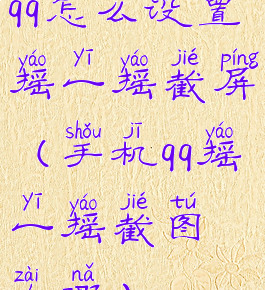 qq怎么设置
yáo yī yáo jié píng
摇一摇截屏
shǒu jī yáo
(手机qq摇
yī yáo jié tú
一摇截图
zài nǎ